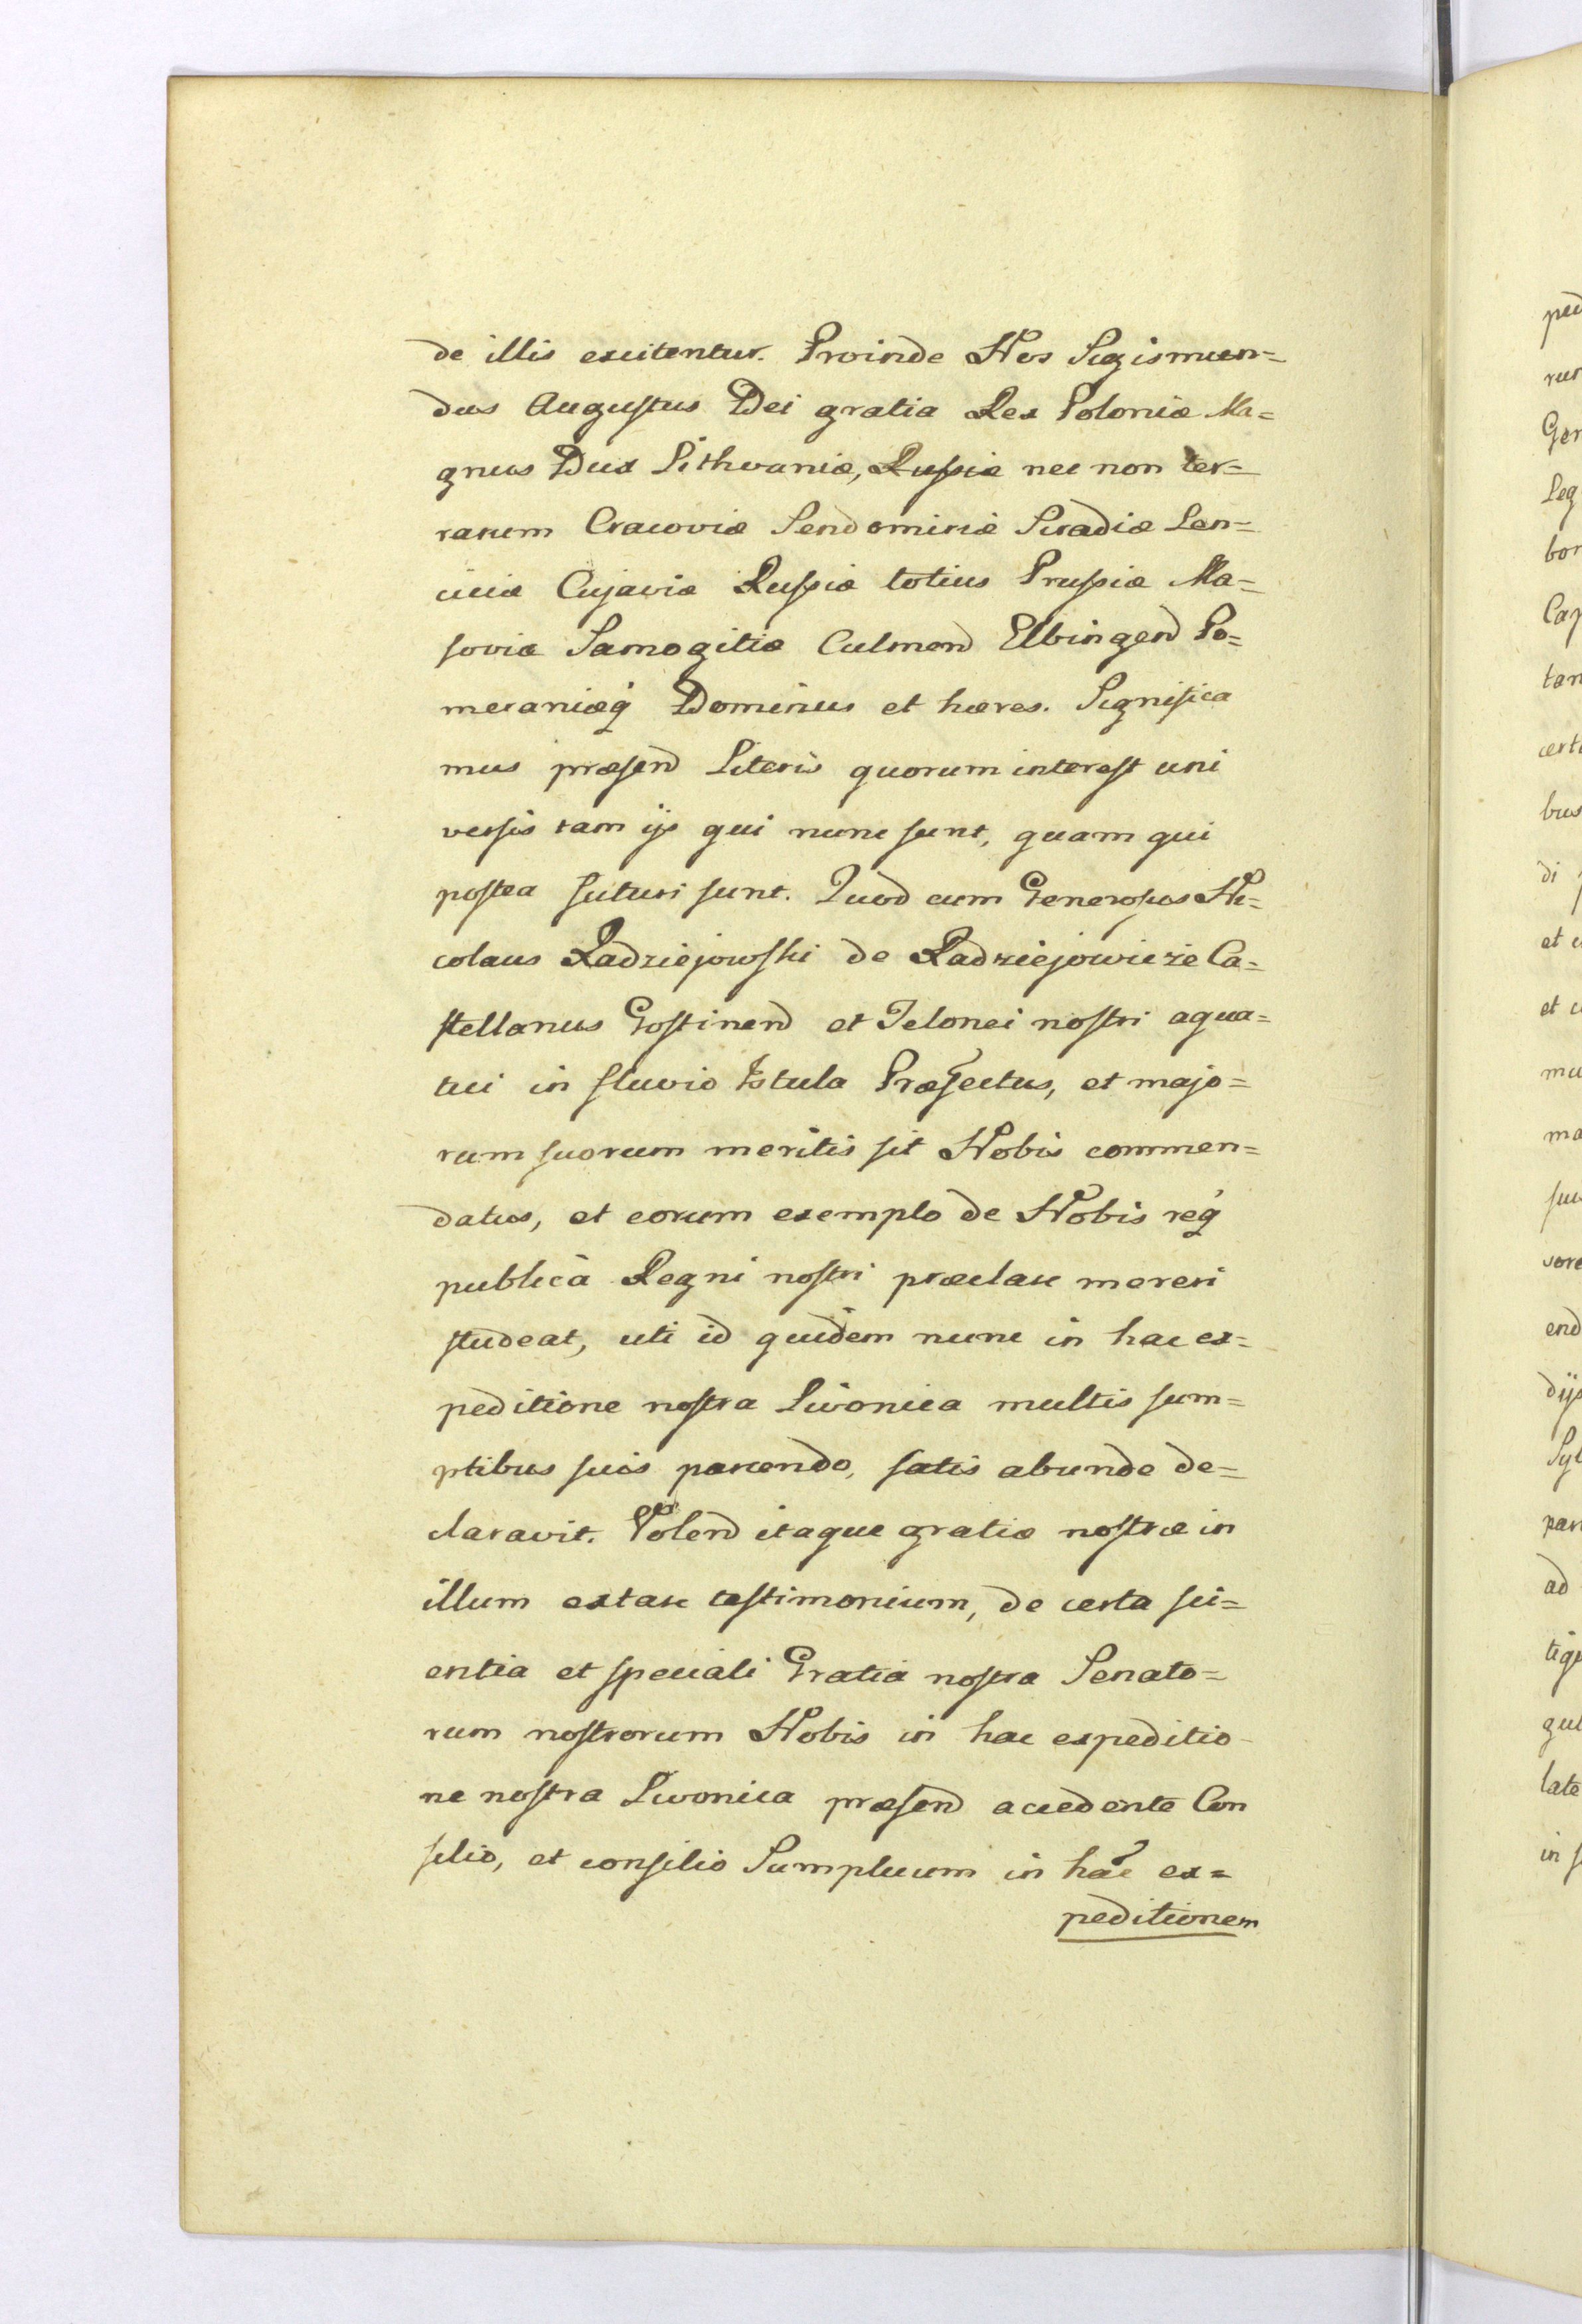 de illis excitentur. Proinde Nos Sigismun=
dus Augustus Dei gratia Rex Poloniæ Ma=
gnus Dux Lithvaniæ, Russiæ nec non ter=
rarum Cracoviæ Sendomiriæ Siradiæ Lan=
ciciæ Cujaviæ Russiæ totius Prussiæ Ma=
soviæ Samogitiæ Culmen Elbingen Po=
meraniæq Dominus et hæres. Significa
mus præsen Literis quorum interest uni
versis tam ijs qui nunc sunt, quam qui
postea futuri sunt. Quod cum Generosus Ni=
colaus Radziejowski de Radziejowicze Ca=
stellanus Gostinen et Telonei nostri aqua=
tici in fluvio Istula Præfectus, et majo=
rum suorum meritis sit Nobis commen=
datus, et eorum exemplo de Nobis req
publicà Regni nostri præclare mereri
studeat, uti id quidem nunc in hac ex=
peditione nostra Livonica multis sum=
ptibus suis parcendo, satis abunde de=
claravit. Volen itaque gratiæ nostræ in
illum extare testimonium, de certa sci=
entia et speciali Gratia nostra Senato=
rum nostrorum Nobis in hac expeditio
ne nostra Livonica præsen accedente Con
silio, et consilio Sumptuum in hac ex=
peditionem
pe
rur
Ger
Leg
bor
Cap
tan
certi
bus
di
et c
et c
mu
ma
suu
vore
end
dijs
Syl
par
ad
gul
late
in s